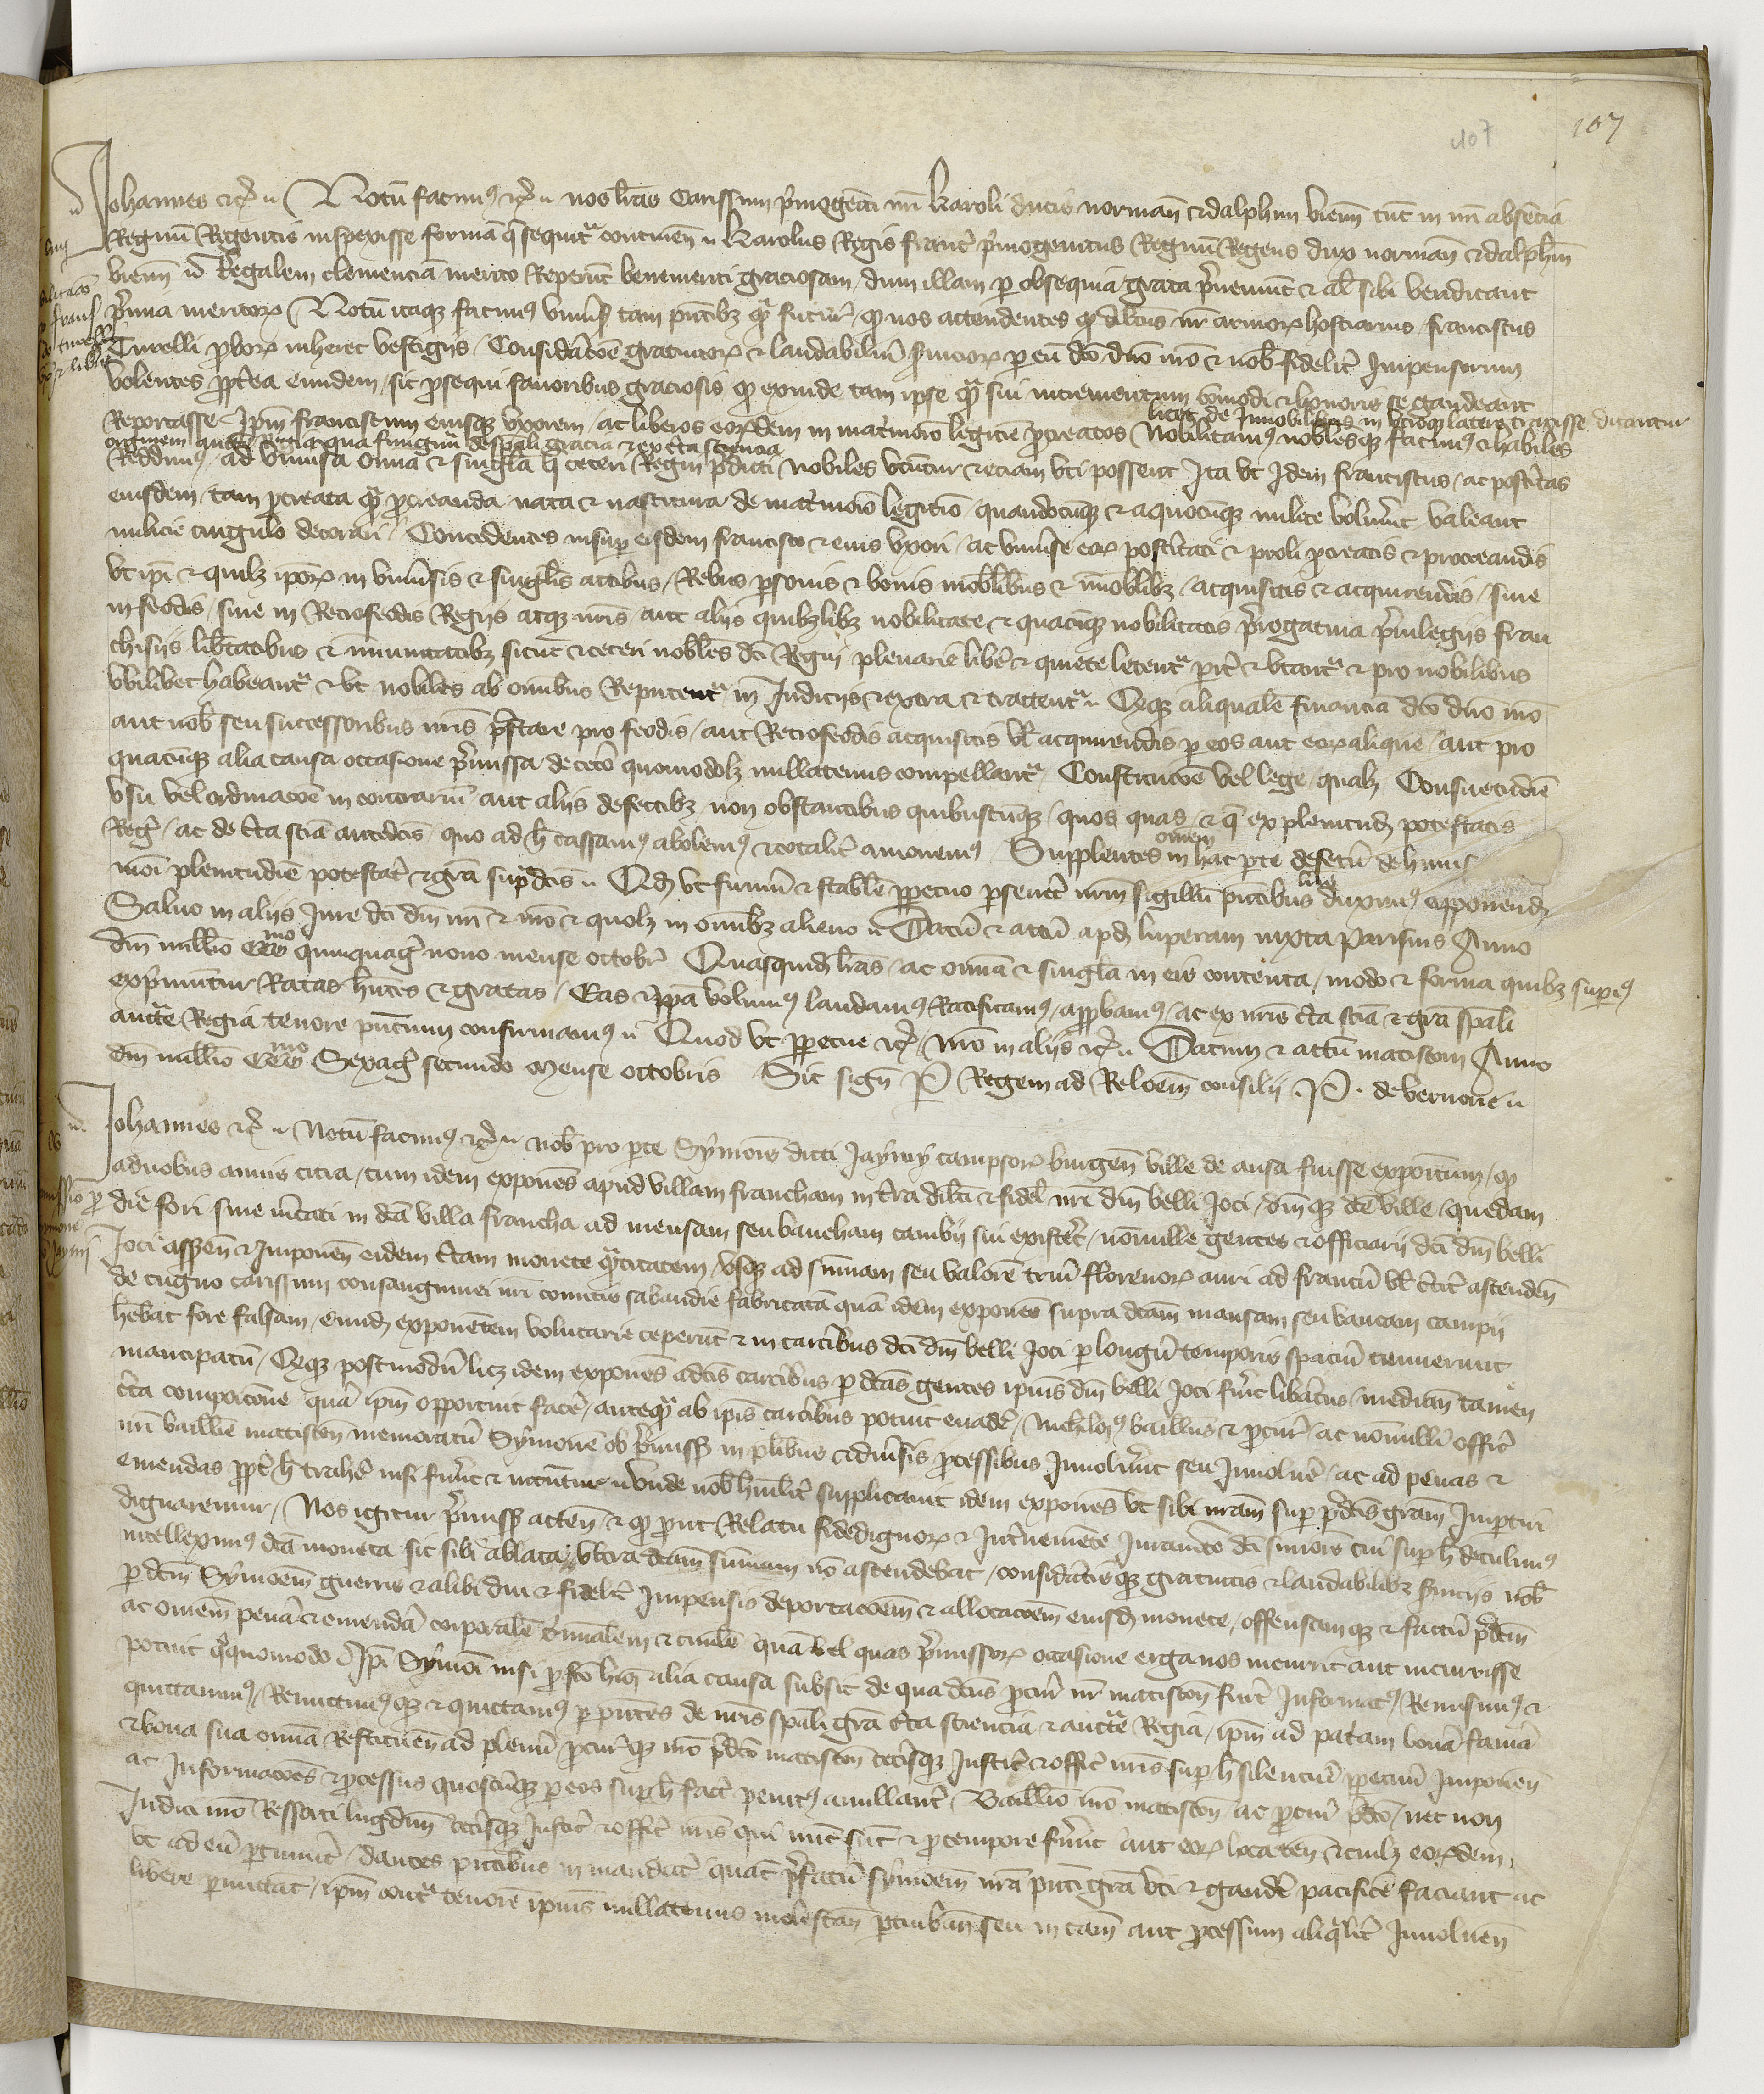 107
107
Johannes etc. Notum facimus etc. nos lras carissimi primogeniti nri Karoli ducis normann et dalphini vienn tunc in nri absencia
Regnum Regentis inspexisse formam que sequitur continen Karolus Regis francie primogenitus Regnum Regens dux normann et dalphin
vienn Regalem clemenciam merito reperiunt benemeriti graciosam dum illam per obsequia grata preveniunt et al sibi vendicant
premia meritorum Notum itaque facimus universis tam presentibus quam futuris quod nos attendentes quod dilectus nr armorum hostiarius franciscus
Turelli proborum inheret vestigiis Consideracione gratuitorum et laudabilium serviciorum per eum dco dno mo et nob fideliter Impensorum
volentes propterea eundem sic prosequi favoribus graciosis quod exinde tam ipse quam sui incrementum comodi et honoris se gaudeant
licet de Innobilibus in utroque latere traxisse dicantur
Reportasse Ipm franciscum eiusque uxorem ac liberos eorumdem in matrimonio legitime procreatos Nobilitamus noblesque facimus et habiles
originem auctoritate regia qua fungimur de speciali gracia et ex certa sciencia
Reddimus ad universa omnia et singula quibus ceteri Regni predicti nobiles utuntur et eciam uti possent Ita ut Idem franciscus ac posteritas
eiusdem tam procreata quam procreanda nata et nascitura de matrimonio legitimo quandocumque et a quocumque milite voluerint valeant
milicie cingulo decorari Concedentes insuper eisdem francisco et eius uxori ac universe eorum posteritati et proli procreatis et procreandis
ut ipi et quilibet ipsorum in universis et singulis actibus Rebus personis et bonis mobilibus et immobilibus acquisitis et acquirendis sive
in feodis sive in Retrofeodis Regiis atque nris aut aliis quibuslibet nobilitate et quacumque nobilitatis prerogativa previlegiis fran
chisiis libertatibus et immunitatibus sicut et ceteri nobiles dci Regni plenarie libere et quiete letentur pariter et utantur et pro nobilibus
ubilibet habeantur et ut nobiles ab omnibus Reputentur in Judiciis et extra et tractentur Absque aliquali financia dco dno mo
aut nob seu successoribus nris prestare pro feodis aut Retrofeodis acquisitis vel acquirendis per eos aut eorum aliquem aut pro
quacumque alia causa occasione premissa de cetero quomodolibet nullatenus compellantur Constitucione vel lege qualibet Consuetudine
usu vel ordinacione in contrarium aut aliis defectibus non obstantibus quibuscumque quos quas et que ex plenitudine potestatis
Regie ac de certa sciencia antedictis quo ad hoc cassamus abolemus et totaliter amovemus Supplentes in hac parte omnem defectum de huius
modi plenitudine potestatis et gracia supradictis Quod ut firmum et stabile perpetuo perseveret nrm sigillum presentibus literis duximus apponendum
Salvo in aliis Jure dci dni nri et nro et quolibet in omnibus alieno Datum et actum apud luperam iuxta Parisius Anno
dni millio CCCmo quinquag nono mense octobr Quasquidem lras ac omnia et singula in eis contenta modo et forma quibus superius
exprimuntur Ratas habentes et gratas Eas et ipsa volumus laudamus Ratificamus approbamus ac ex nris certa sciencia et gracia speciali
auctoritate Regia tenore presencium confirmamus Quod ut perpetue etc nro in aliis etc Datum et actum matiscon Anno
dni millio CCCmo Sexag secundo Mense octobris Sic sign Per Regem ad Relacionem consilii P. de vernone
Johannes etc Notum facimus etc nob pro parte Symonis dicti Jayny campsoris burgen ville de ansa fuisse expositum quod
a duobus annis citra cum idem exponens apud villam francham in terra dilecti et fidel nri dni belli Joci dnique dce ville quedam
die fori sive mercati in dca villa francha ad mensam seu bancham cambii sui existeret nonnulle gentes et officiarii dci dni belli
Joci asseren et Imponen eidem certam monete quantitatem usque ad summam seu valorem trium florenorum auri ad francum vel circiter ascenden
de cugno carissimi consanguinei nri comitis sabaudie fabricatam quam idem exponens supra dcam mensam seu bancam campii
habebat fore falsam eundem exponentem voluntarie ceperunt et in carceribus dci dni belli Joci per longum temporis spacium tenuerunt
mancipatum Absque postmodum licet idem exponens a dcis carceribus per dcas gentes ipius dni belli Joci fuerit liberatus median tamen
certa composicione quam ipm opportuit facere antequam ab ipis carceribus potuit evadere Nichilominus baillivus et procur ac nonnulli officr
nri baillivie matiscon memoratum Symonem ob premissa in pluribus et diversis processibus Involverunt seu Involvere ac ad penas et
emendas propter hoc trahere nisi fuerunt et nituntur unde nob humiliter supplicavit idem exponens ut sibi nram super predictis graciam Impertiri
dignaremur Nos igitur premissis attentis et quod prout Relatu fidedignorum et Interveniente Juramento dci simonis cui super hoc detulimus
intelleximus dca moneta sic sibi ablata ultra dcam summam non ascendebat consideratisque gratuitis et laudabilibus serviciis nob
per dcm Symonem guerris et alibi diu et fideliter Impensis deportacionem et allocacionem eiusdem monete offensamque et factum predictum
ac omnem penam et emendam corporalem criminalem et civilem quam vel quas premissorum occasione erga nos incurrit aut incurrisse
potuit quoquomodo Ipi Symoni nisi per factum huiusmodi alia causa subsit de qua dcus procur nr matiscon fuerit Informatus Remisimus et
quittavimus Remittimusque et quittamus per presentes de nris speciali gracia certa sciencia et auctoritate Regia ipm ad patriam bonam famam
et bona sua omnia Restituen ad plenum procurique nro predicto matiscon ceterisque Justic et offic nris super hoc silencium perpetuum Imponen
ac Informaciones et processus quoscumque per eos super hoc fact penitus anullantes Baillivo nro matiscon ac procur predicto nec non
Judici nro Ressorti lugdun ceterisque Justic et offic nris qui nunc sunt et pro tempore fuerint aut eorum locaten et cuilibet eorumdem
ut ad eum pertinuerit dantes presentibus in mandatis quatinus prefatum Symonem nra presenti gracia uti et gaudere pacifice faciant ac
libere permittant ipm contra tenorem ipius nullatenus molestan perturban seu in causam aut processum aliqualiter Involven